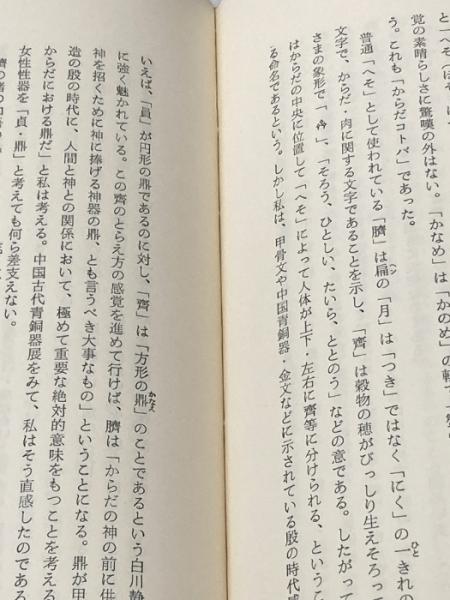 と「へそ(ほ
覚の素晴らしさに驚嘆の外はない。「かなめ」は「かのめ」の転で
う。これも「からだコトバ」であった。
普通「へそ」として使われている「臍」は扁の「月」は「つき」ではなく「にく」の一きれの
ヘン
ひと
文字で、からだ・肉に関する文字であることを示し、「齊」は穀物の穂がびっしり生えそろって
さまの象形で「 」、「そろう、ひとしい、たいら、ととのう」などの意である。したがって
はからだの中央に位置して「へそ」によって人体が上下・左右に齊等に分けられる、というこ
る命名であるという。しかし私は、甲骨文や中国青銅器・金文などに示されている殷の時代感
いえば、「員」が円形の鼎であるのに対し、「齊」は「方形の鼎」のことであるという白川静
かなえ
に強く魅かれている。この齊のとらえ方の感覚を進めて行けば、臍は「からだの神の前に供
神を招くために神に捧げる神器の鼎、とも言うべき大事なもの」ということになる。鼎が甲
造の殷の時代に、人間と神との関係において、極めて重要な絶対的意味をもつことを考える
からだにおける鼎だ」と私は考える。中国古代青銅器展をみて、私はそう直感したのである
女性性器を「貞・鼎」と考えても何ら差支えない。